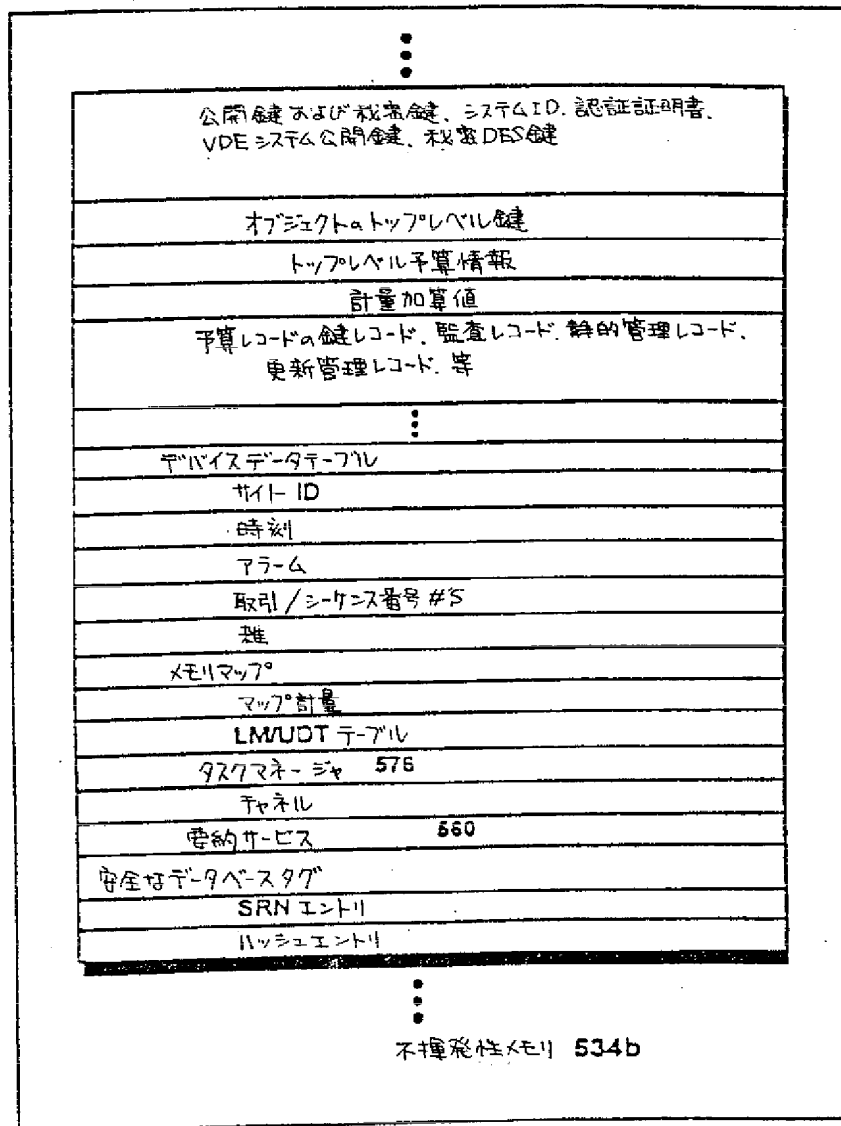 公開鍵および秘密鍵、システムID、認証証明書、
VDEシステム公開鍵、秘密DES鍵
オブジェクトのトップレベル鍵
トップレベル予算情報
計量加算値
予算レコードの鍵レコード、監査レコード、静的管理レコード、
更新管理レコード、等
デバイスデータテーブル
サイトID
時刻
アラーム
取引/シーケンス番号#'S
雑
メモリマップ
マップ計量
LM/UDTテーブル
タスクマネージャ 576
チャネル
要約サービス 560
安全なデータベースタグ
SRNエントリ
ハッシュエントリ
不揮発性メモリ 534b